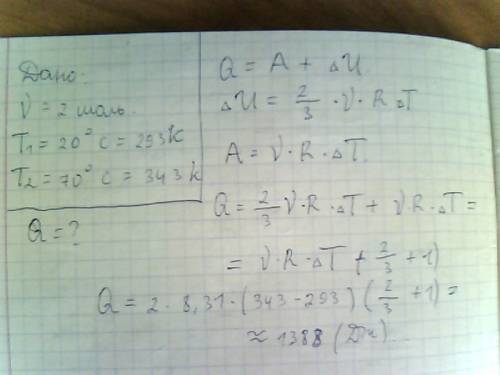 Дано:
ν = 2 моль.
T₁ = 20° C = 293 K
T₂ = 70° C = 343 K
Q = ?
Q = A + ΔU.
ΔU = 2/3 · ν · R ΔT
A = ν · R · ΔT.
Q = 2/3 ν · R · ΔT + νR · ΔT =
= ν · R · ΔT (2/3 + 1)
Q = 2 · 8,31 · (343 - 293) (2/3 + 1) =
≈ 1388 (Дж)